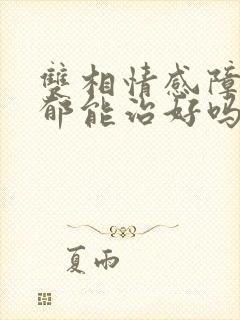 雙相情感障
郁能治好吗
夏雨